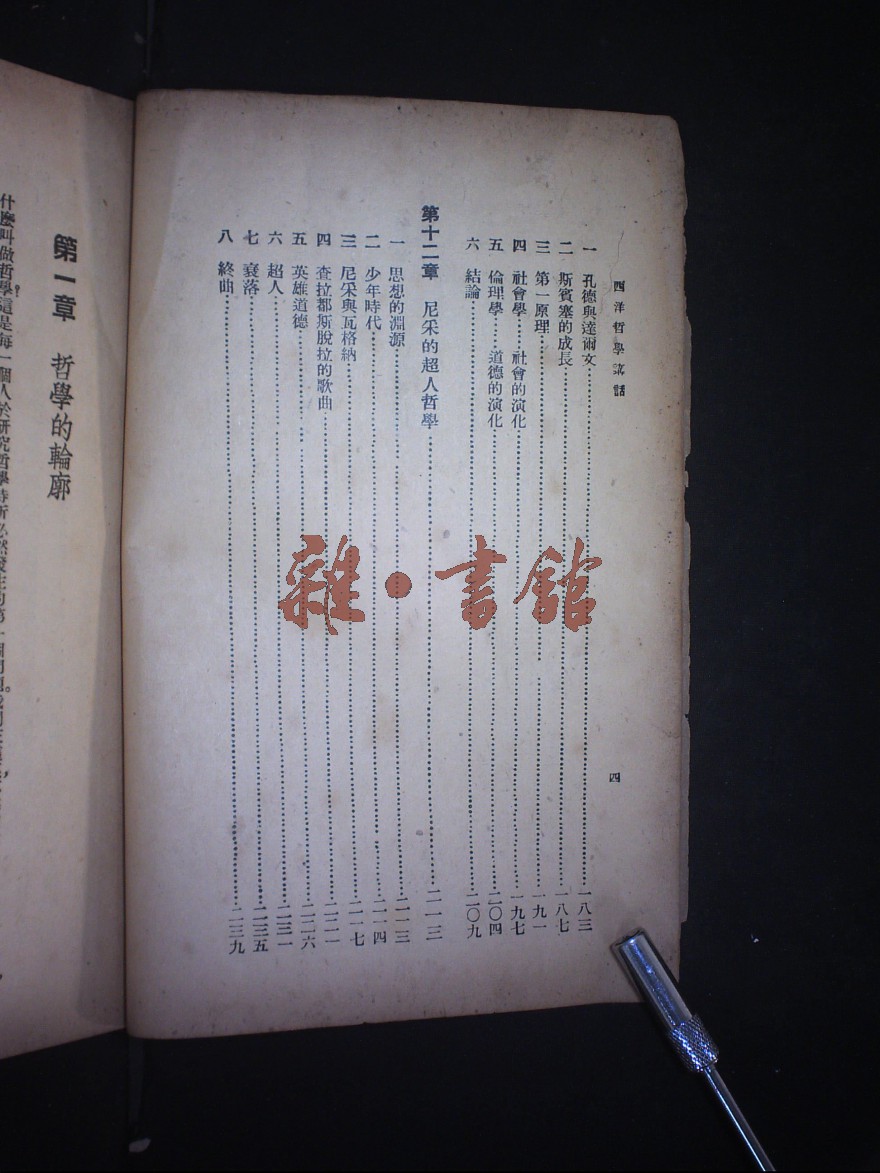 西洋哲學講話
四
一 孔德與達爾文 一八三
二 斯賓塞的成長 一八七
三 第一原理 一九一
四 社會學 社會的演化 一九七
五 倫理學 道德的演化 二〇四
六 結論 二〇九
第十二章 尼采的超人哲學 二一三
一 思想的淵源 二一三
二 少年時代 二一四
三 尼采與瓦格納 二一七
四 查拉都斯脫拉的歌曲 二二一
五 英雄道德 二二六
六 超人 二三一
七 衰落 二三五
八 終曲 二三九
雜·書館
第一章 哲學的輪廓
什麼叫做哲學?這是每一個人於研究哲學時所必然發生的第一個問題。